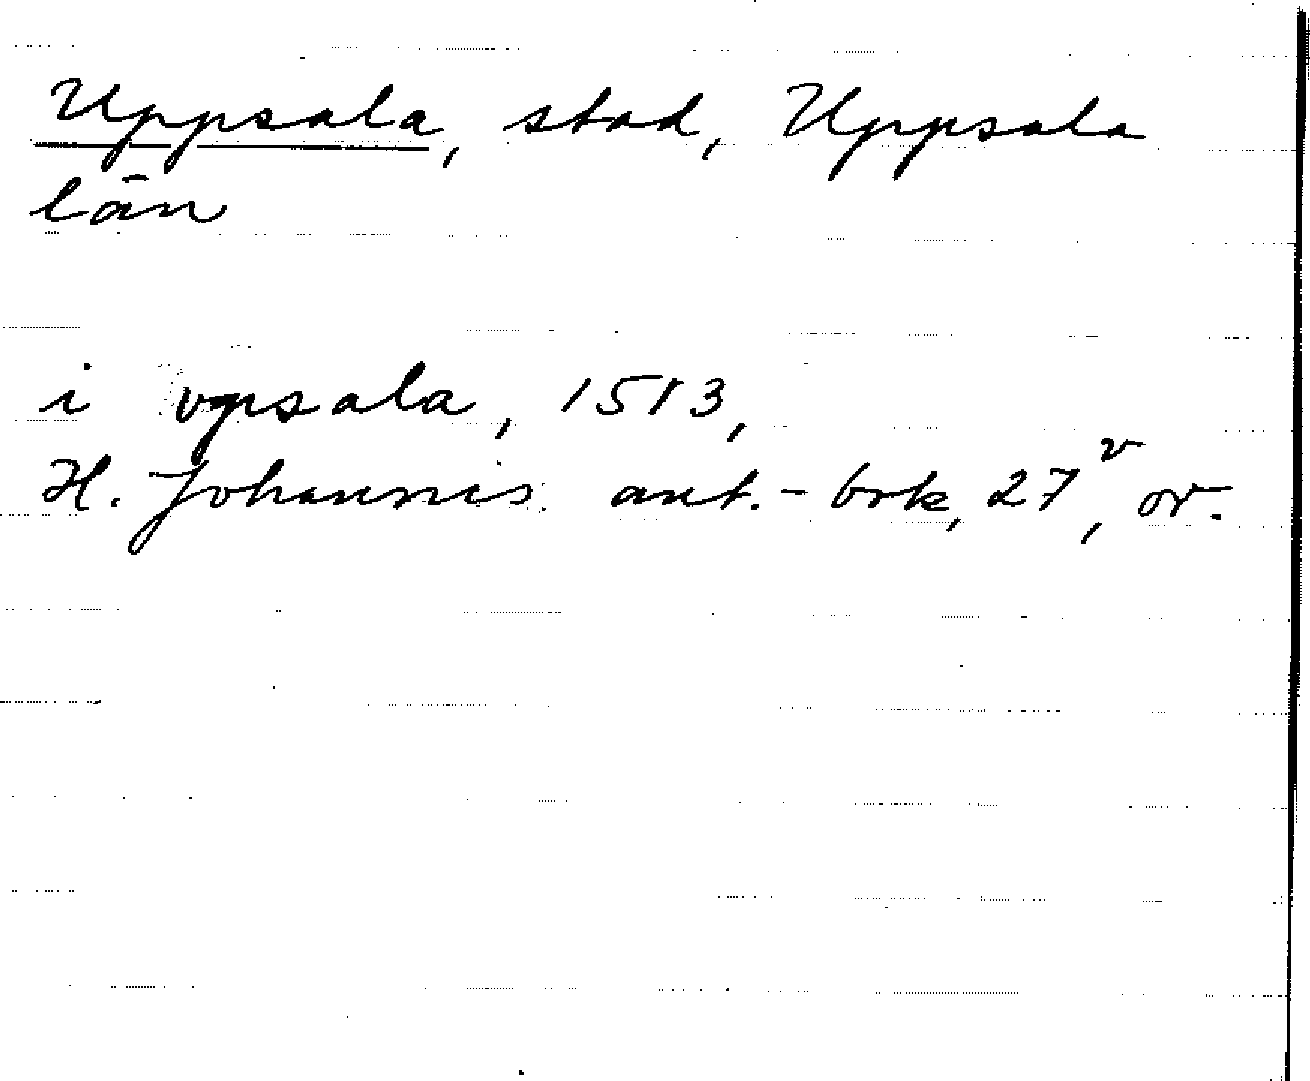 Uppsala, stad, Uppsala
län
i vpsala, 1513,
H. Johannis ant.-bok, 27v, or.